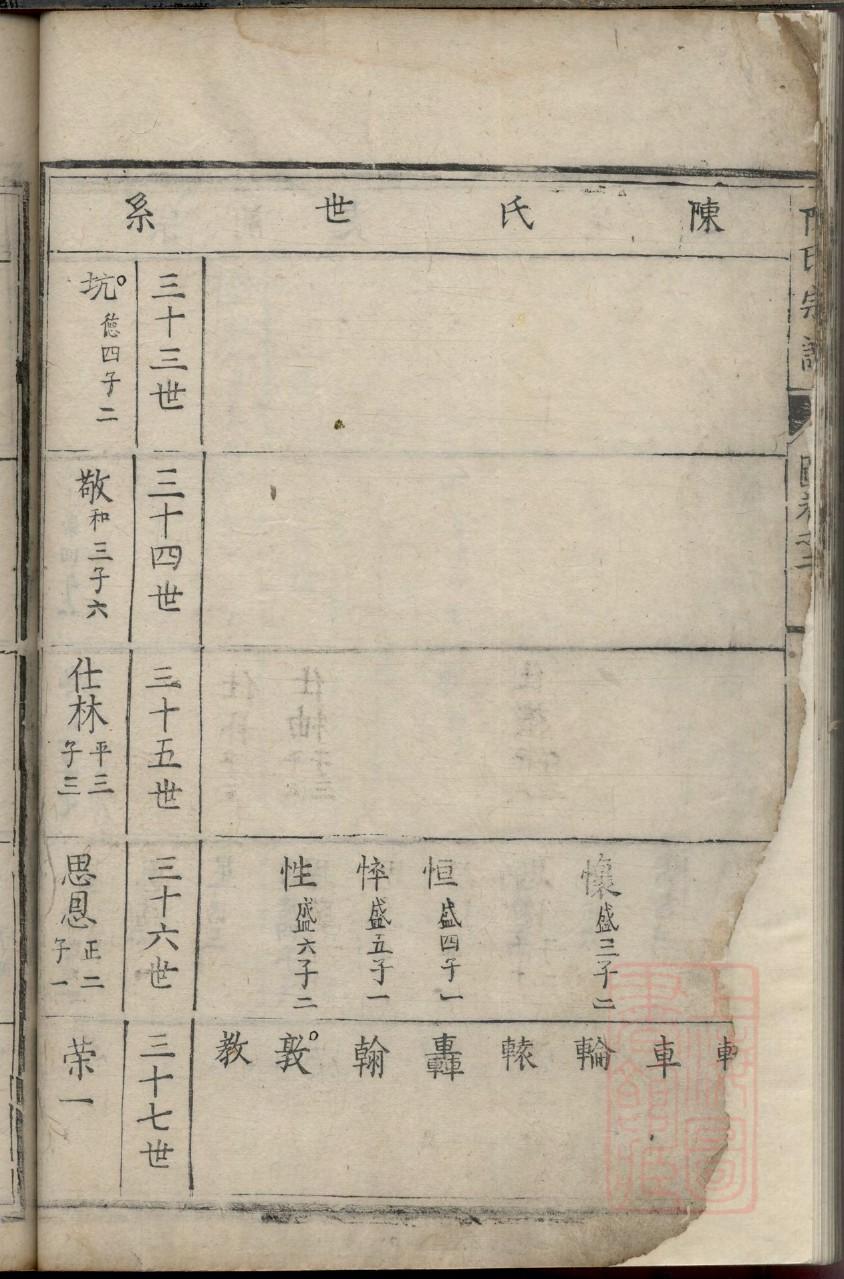 陳氏世系
懷 盛三子二
恒 盛四子一
悴 盛五子一
性 盛六子二
車
輪
轅
轟
翰
敦
教
三十三世
三十四世
三十五世
三十六世
三十七世
坑 德四子二
敬 和三子六
仕林 平三子三
思恩 正二子一
荣一